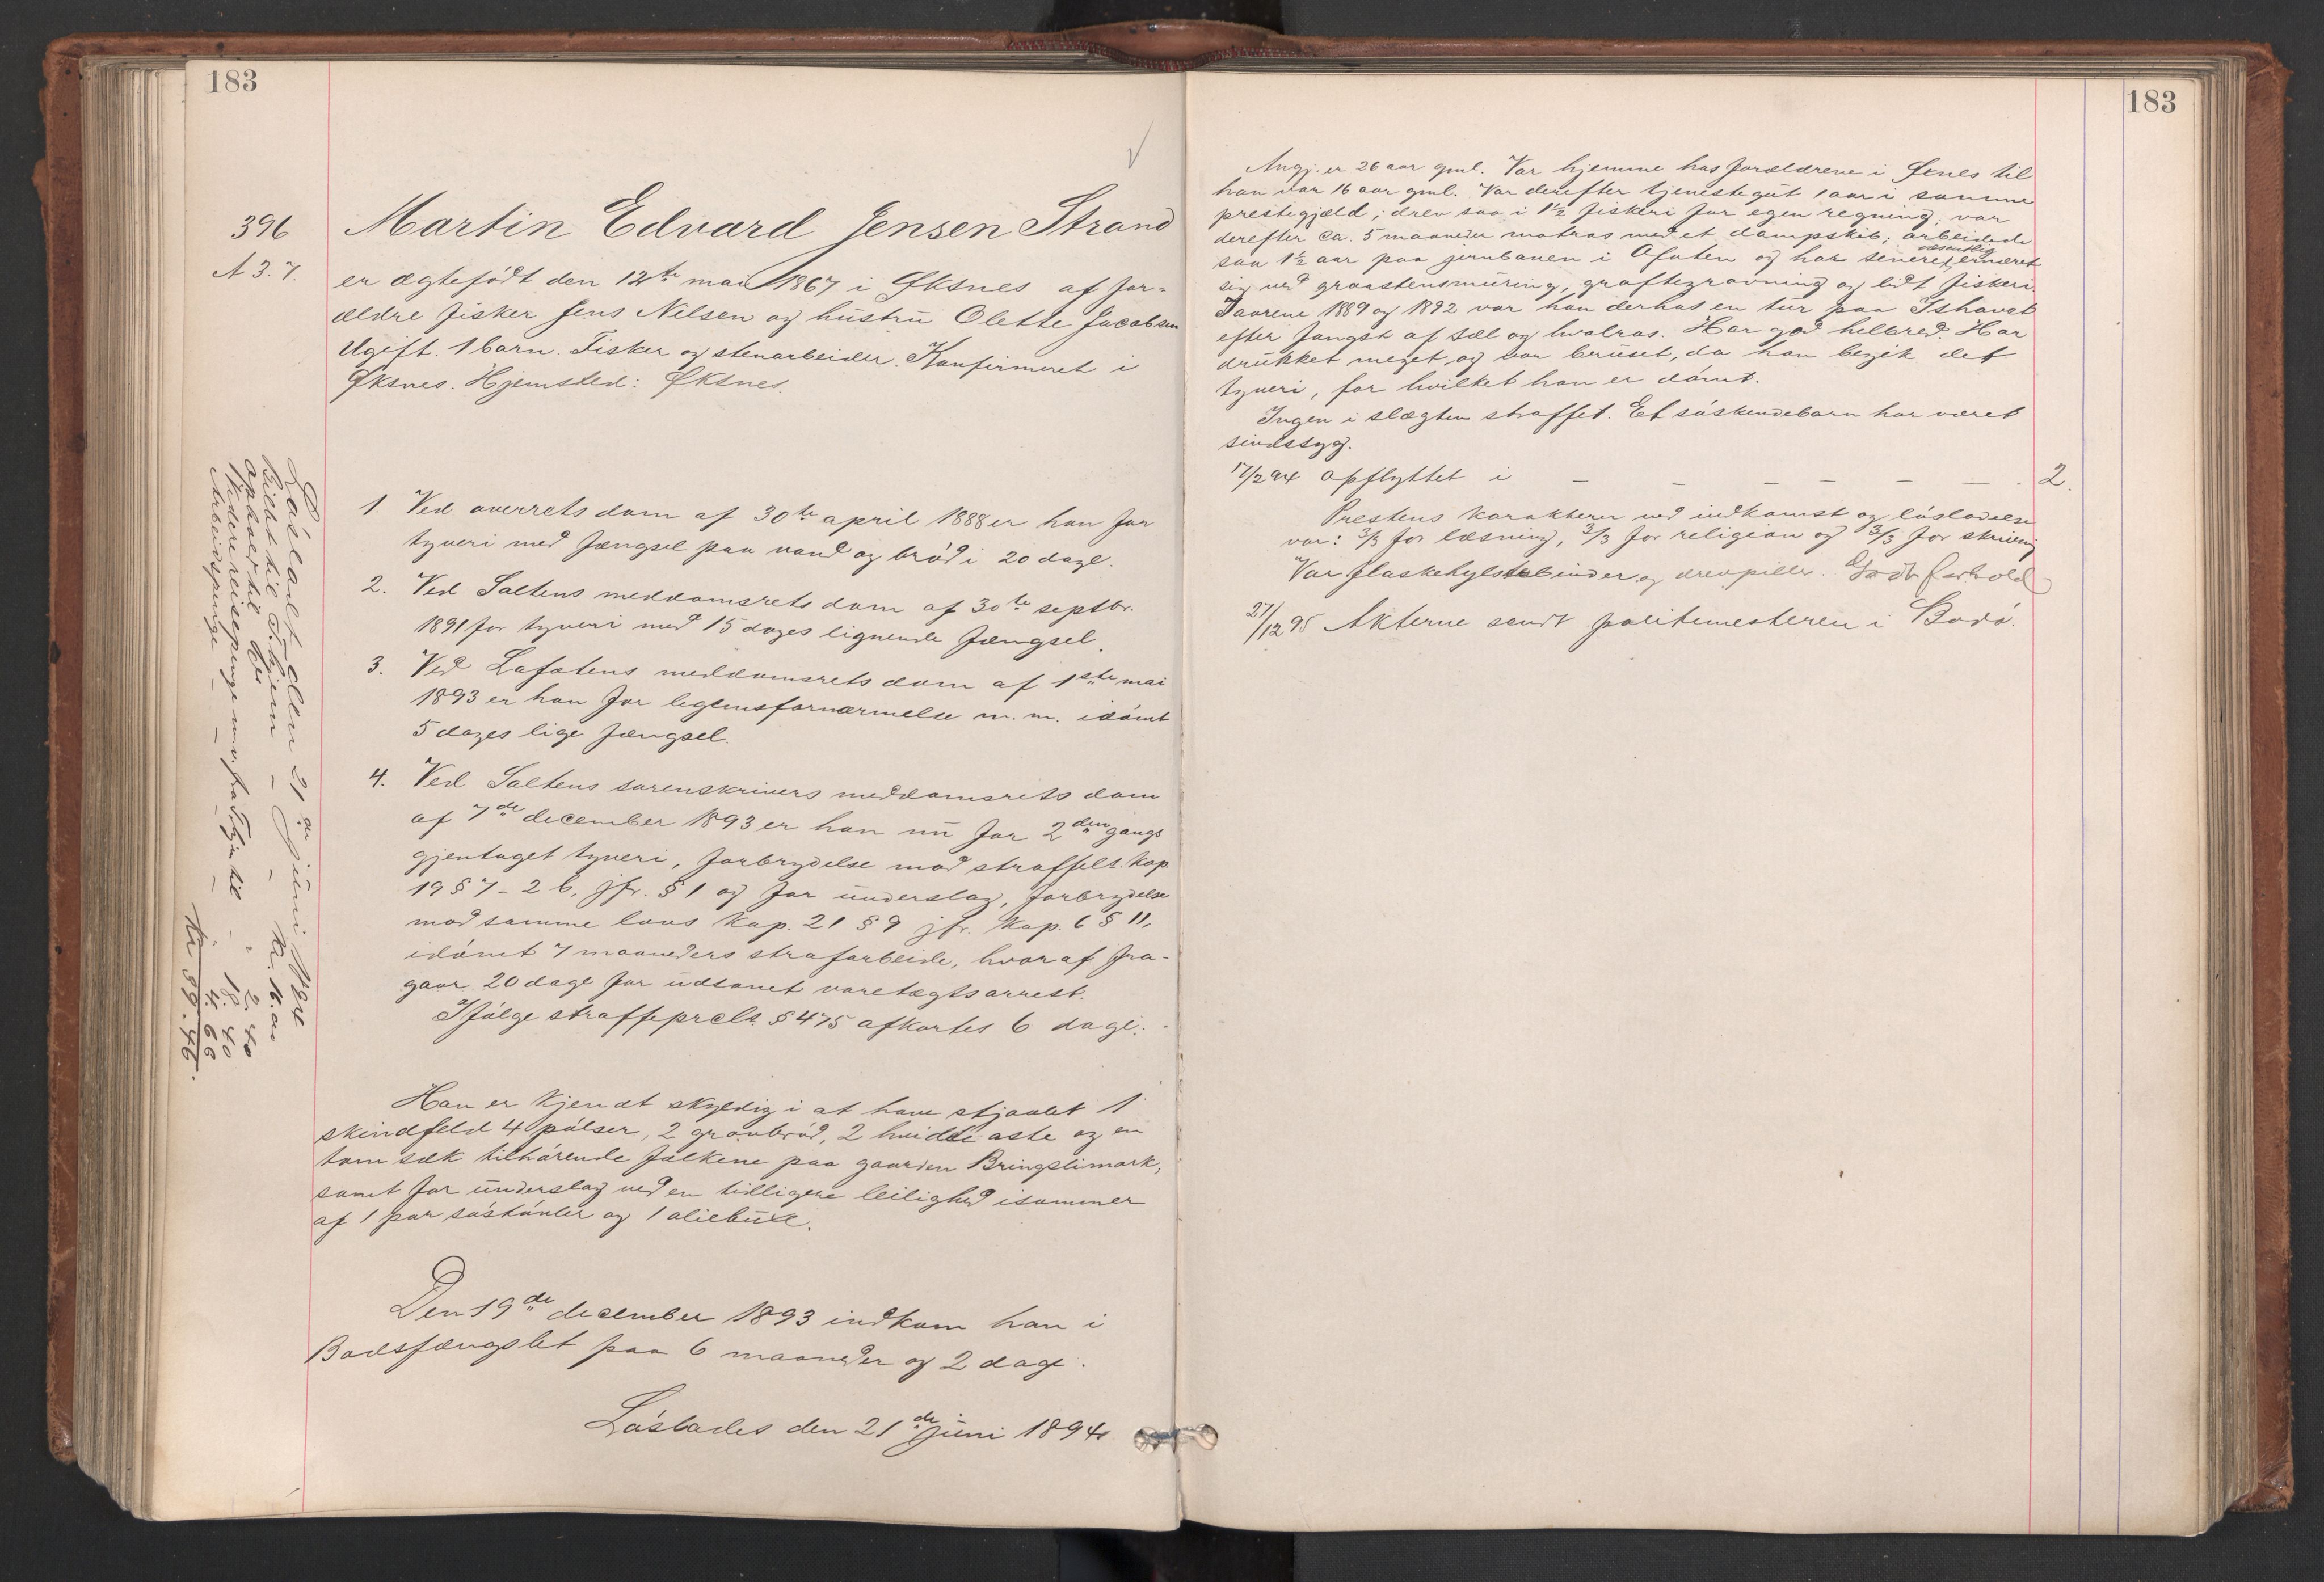 183
396
A 3.7.
Martin Edvard Jensen Strand
er ægtefödt den 12te mai 1867 i Øksnes af for-
ældre fisker Jens Nilsen og hustru Olette Jacobsen
Ugift. 1 barn. Fisker og stenarbeider. Konfirmeret i
Øksnes. Hjemsted: Øksnes.
1. Ved overrets dom af 30te april 1888 er han for
tyveri med fængsel paa vand og bröd i 20 dage.
2. Ved Saltens meddomsrets dom af 30te septbr.
1891 for tyveri med 15 dages lignende fængsel.
3. Ved Lofotens meddomsrets dom af 1ste mai
1893 er han for legemsfornærmelse m. m. idömt
5 dages lige fængsel.
4. Ved Saltens sorenskrivers meddomsrets dom
af 7de december 1893 er han nu for 2den gangs
gjentaget tyveri, forbrydelse mod straffels. kap.
19 § 7 - 2 b, jfr. § 1 og for underslag, forbrydelse
mod samme lovs kap. 21 § 9 jfr. kap. 6 § 11,
idömt 7 maaneders strafarbeide, hvoraf fra-
gaar 20 dage for udsonet varetægtsarrest.
Ifölge straffeprcls. § 475 afkortes 6 dage.
Han er kjendt skyldig i at have stjaalet 1
skindfeld 4 pölser, 2 grovbröd, 2 hvide oste og en
tom sæk tilhörende folkene paa gaarden Bringslimark,
samt for underslag ved en tidligere leilighed isommer
af 1 par söstövler og 1 oliebuxe.
Den 19de december 1893 indkom han i
Bodsfængslet paa 6 maaneder og 2 dage.
Löslades den 21de juni 1894
Lösladt den 21de juni 1894
Billet til Thjem - - Kr. 16.00
ophold til - " 2.40
Videre reisepenge m.m. fra Thjem til - " 18.40
Arbeidspenge - - - " 4.66
Kr. 39.46.
183
Angj. er 26 aar gml. Var hjemme hos forældrene i Øsnes til
han var 16 aar gml. Var derefter tjenestegut 1 aar i samme
prestegjæld; drev saa i 1½ fiskeri for egen regning; var
derefter ca. 5 maaneder matros med et dampskib; arbeidede
saa 1½ aar paa jernbanen i Ofoten og har senere væsentlig ernæret
sig ved graastensmuring, grøftegravning og lidt fiskeri.
I aarene 1889 og 1892 var han derhos en tur paa Ishavet
efter fangst af sæl og hvalros. Har god helbred. Har
drukket meget og var beruset, da han begik det
tyveri, for hvilket han er dömt.
Ingen i slægten straffet. Et söskendebarn har været
sindssyg.
17/2 94 opflyttet i - - - - - - 2.
Prestens karakterer ved indkomst og löslødelse
var: 3/3 for læsning, 3/3 for religion og 3/3 for skrivning
Var flaskehylsterbinder og drevpiller. Godt forhold
27/12 95 Akterne sendt politimesteren i Bodö.